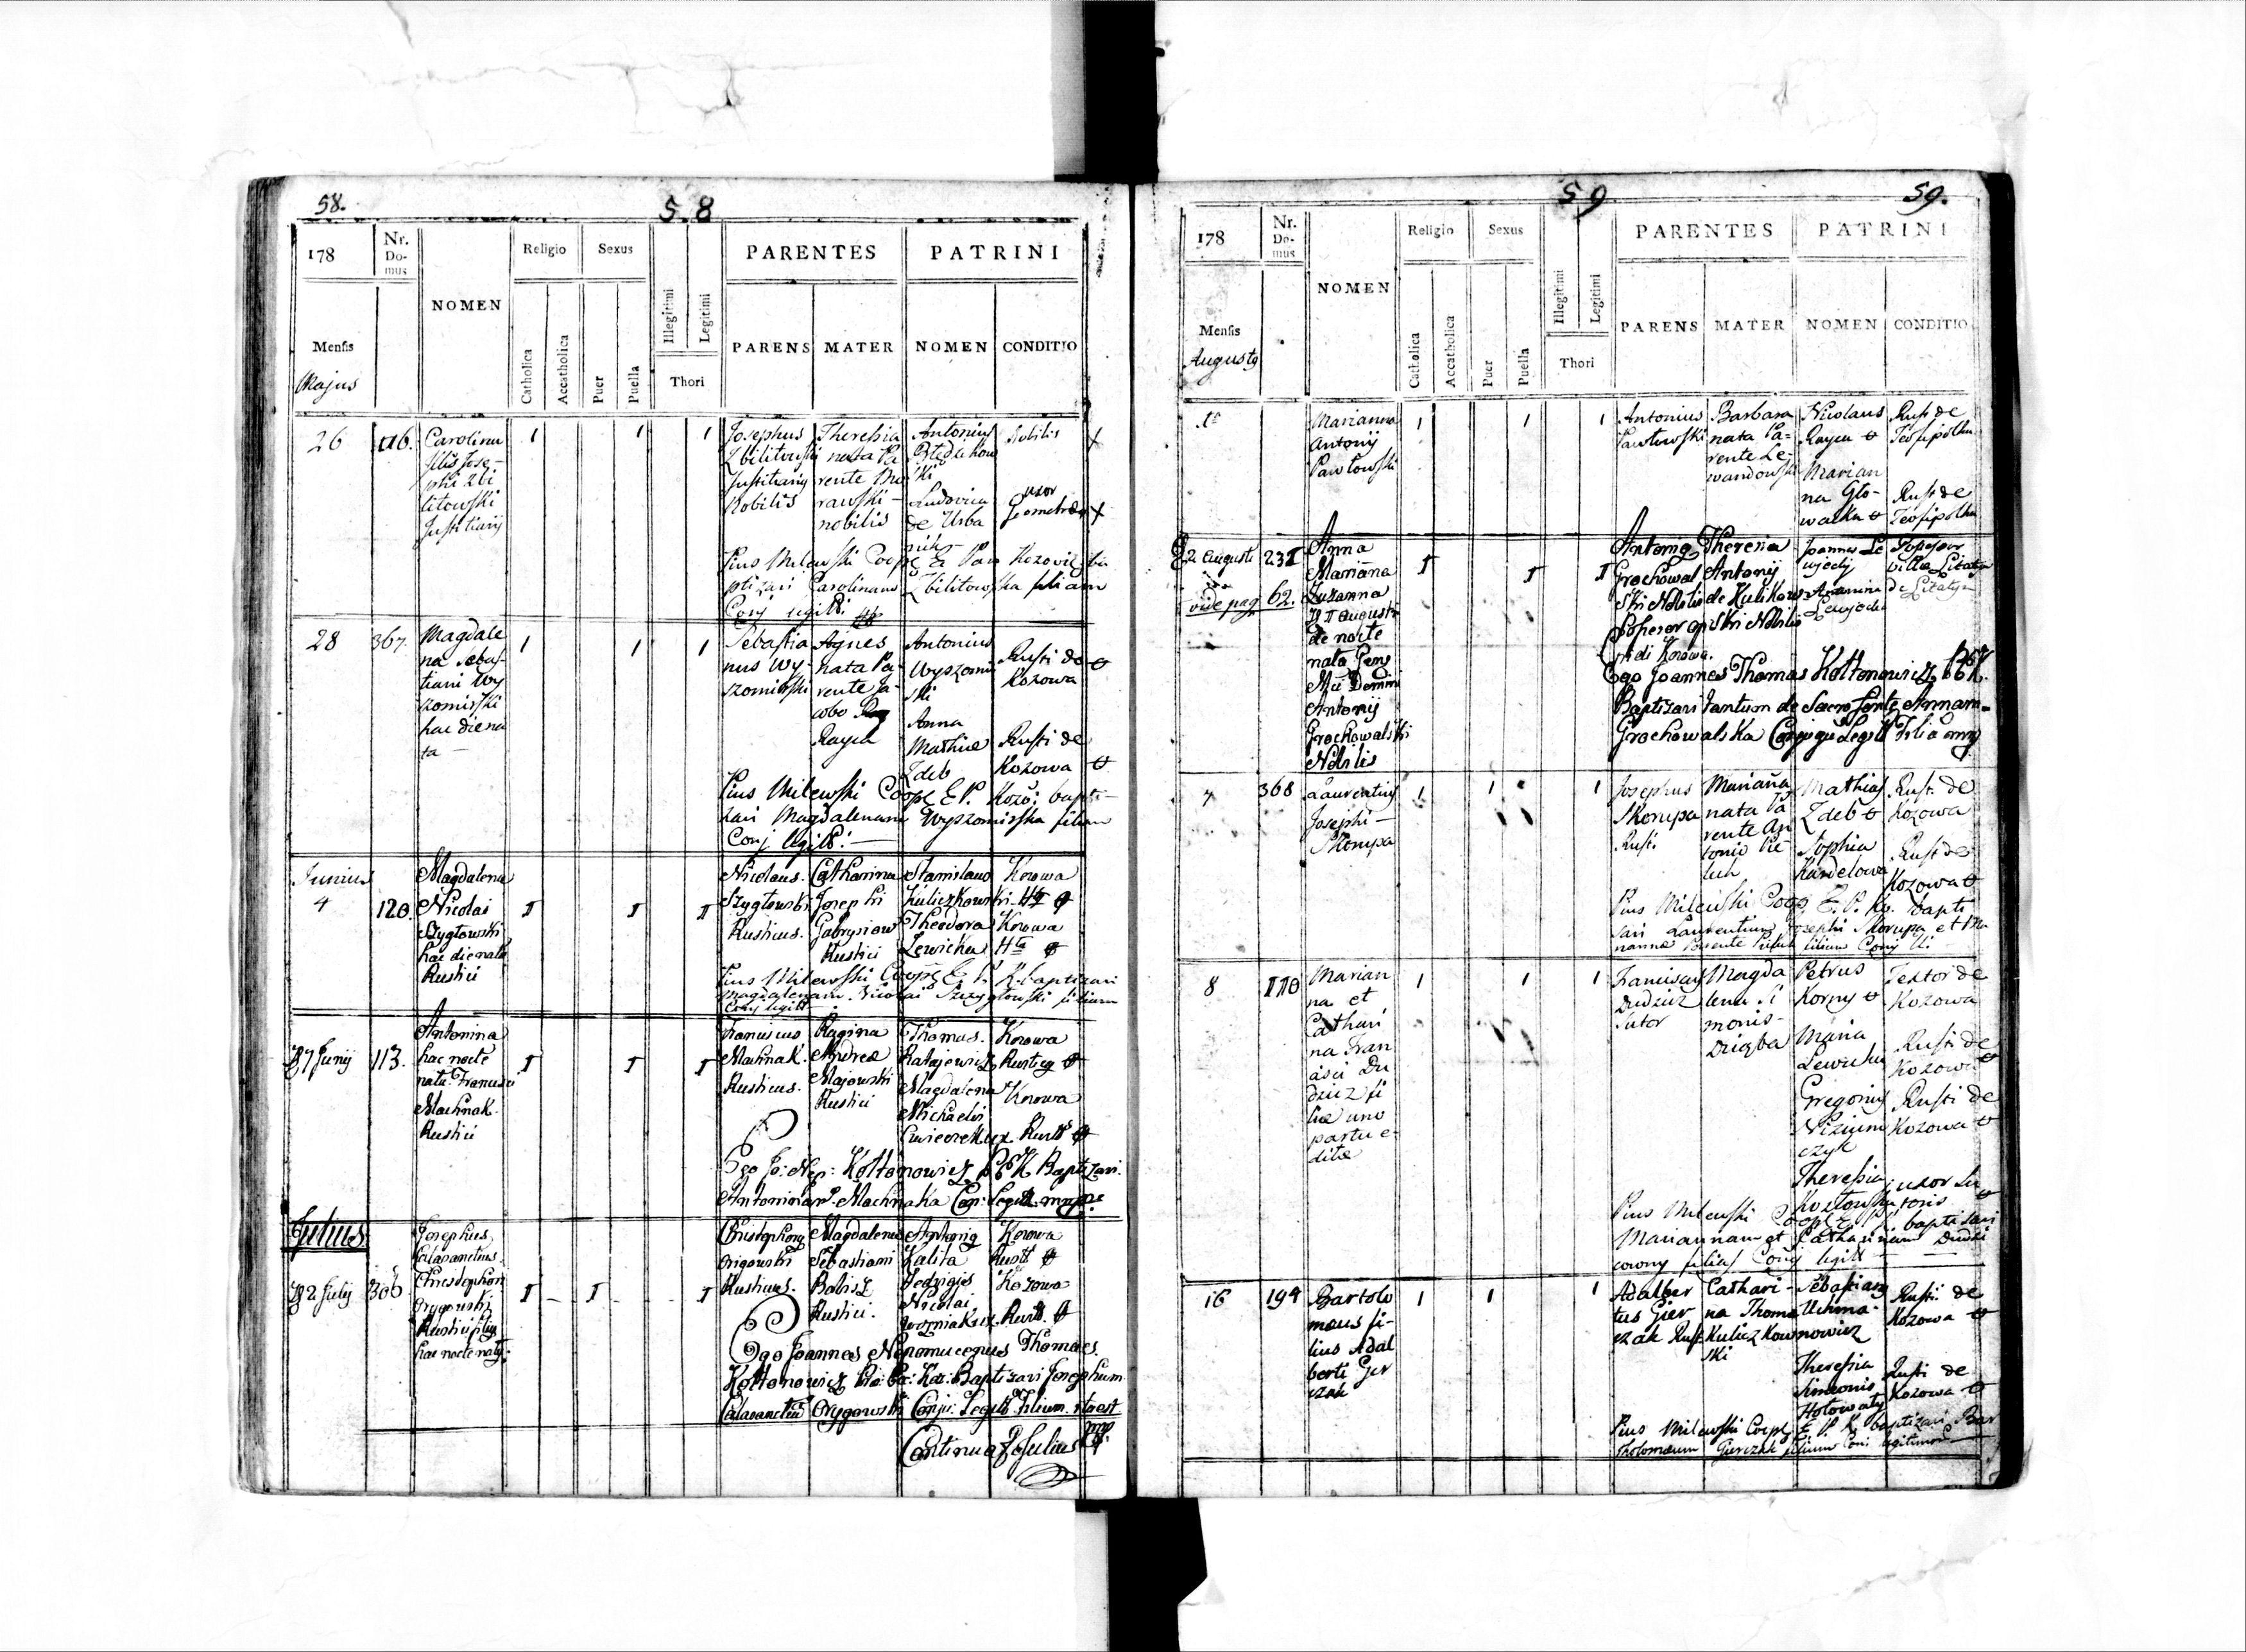 58.
5.8
178
Nr. Do-mus
NOMEN
Religio
Sexus
Illegitimi
Legitimi
PARENTES
PATRINI
Mensis
Majus
Catholica
Accatholica
Puer
Puella
Thori
PARENS
MATER
NOMEN
CONDITIO
26
116.
Carolina
filia Jose-
phi Zbi
litowski
Justitiarij
1
1
1
Josephus
Zbilitowski
Justitiarij
Nobilis
Theresia
nata Pa
rente Mu
rawski -
nobilis
Antonius
ski
Ludovica
de Urba
Nobilis
uxor
Geometræ
Pius Milewski Coop E Par Kozovie ba
ptizavi Carolinam Zbilitowska filiam
Conj legitt:
28
367.
Magdale
na Sebas-
tiani Wy
szomirski
hac die na
ta —
1
1
1
Sebastia
nus Wy-
szomirski
Agnes
nata Pa-
rente Ja-
cobo
Rayca
Antonius
Wyszomir
ski
Anna
Mathiæ
Zdeb
Rusti de
Kozowa
Rusti de
Kozowa
Pius Milewski Coop E P. Kozo: bapti-
zavi Magdalenam Wyszomirska filiam
Conj legitt: —
Junius
4
120.
Magdalena
Nicolai
Szygłowski
hac die nata
Rustici
I
I
I
Nicolaus.
Szygłowski
Rusticus.
Catharina
Josephi
Gabrysiow
Rustici
Stanislaus
Kuliczkowski
Theodora
Lewicka
Kozowa
Kozowa
Pius Milewski Coop E P. K. baptizavi
Magdalenam Nicolai Szczygłowski filiam
Conj legitt
27 Junij
113.
Antonina
hac nocte
nata Francisci
Machnak.
Rustici
I
I
I
Franciscus
Machnak.
Rusticus.
Regina
Andreæ
Majowski
Rustici
Thomas.
Ratajewicz
Magdalena
Michaelis
Cwieczek ux
Kozowa
Kozowa
Rustt
Ego Jo: Nep: Kołtonowicz P E K Baptizavi.
Antoninam Machnaka Conj: Legitt. mppr.
Julius
22 July
306
Josephus
Calasanctius
Christophori
Grygowski
Rustici filius
hac nocte nat9
I
I
I
Christophor9
Grigowski
Rusticus.
Magdalena
Sebastiani
Babisz
Rustici.
Antonig
Kalita
Jedvigis
Nicolai
Wozniak ux.
Kozowa
Rustt
Kozowa
Rustt.
Ego Joannes Nepomucenus Thomas.
Kołtonowicz Baptizavi Josephum
Calasanctiu Grygowski Conju: Legitt Filium.
Continuatio Julius
59
59.
178
Nr. Do-mus
NOMEN
Religio
Sexus
Illegitimi
Legitimi
PARENTES
PATRINI
Mensis
Augustg
Catholica
Accatholica
Puer
Puella
Thori
PARENS
MATER
NOMEN
CONDITIO
Marianna
Antonij
Pawłowski
1
1
1
Antonius
Pawłowski
Barbara
nata Pa=
rente Le-
wandowski
Nicolaus
Rayca
Marian
na Gło-
wacka
Rusti de
Teofipolka
Rusti de
Teofipolka
22 Augusti
232
vide pag 62.
Anna
Marianna
Zuzanna
Augusti
de nocte
nata Gens
Domini
Antonij
Grochowalski
Nobilis
I
I
I
Antonig
Grochowal
ski Nobilis
Posesor
Kozowa.
Theresia
Antonij
de Kulikow
ski Nobilis
Joannes
Posesor
villa Litatyn
de Litatyn
Ego Joannes Thomas Kołtonowicz
Baptizavi tantum de Sacro Fonte Annam
Grochowalska Conjugu Legitt Filiam
7
368
Laurentius
Josephi —
Skorupa
1
1
1
Josephus
Skorupa
Rusti
Marianna
nata Pa
rente An
tonio
Mathias
Zdeb
Sophia
Kandelowa
Rusti de
Kozowa
Rusti de
Kozowa
Pius Milewski Coop. E. P. Ko. bapti
zavi Laurentium Josephi Skorupa et Ma
rianna Parente filium Conj
8
110
Marian
na et
Cathari
na Fran
cisci Du
dzicz fi
liæ uno
partu e-
ditæ
1
1
1
Franciscus
Dudzicz
Sutor
Magda
lena Si
monis-
Dziegba
Petrus
Korny
Maria
Lewicka
Gregorius
Nizium
czyk
Theresia
Kozłowska
Textor de
Kozowa
Rusti de
Kozowa
Rusti de
Kozowa
uxor Su
toris
Pius Milewski Coop E P baptizavi
Mariannam et Catharinam Dudzi
cowny filias Conj legitt
16
194
Bartolo
mæus fi-
lius Adal
berti Gier
czak
1
1
1
Adalber
tus Gier
czak Rust
Cathari-
na Thoma
Kuliczkow
ski
Sebastiang
Uchma-
nowicz
Theresia
Simeonis
Hołowaty
Rusti de
Kozowa
Rusti de
Kozowa
Pius Milewski Coop E P. K. baptizavi Bar
tholomæum Gierczak filium Conj legitimor